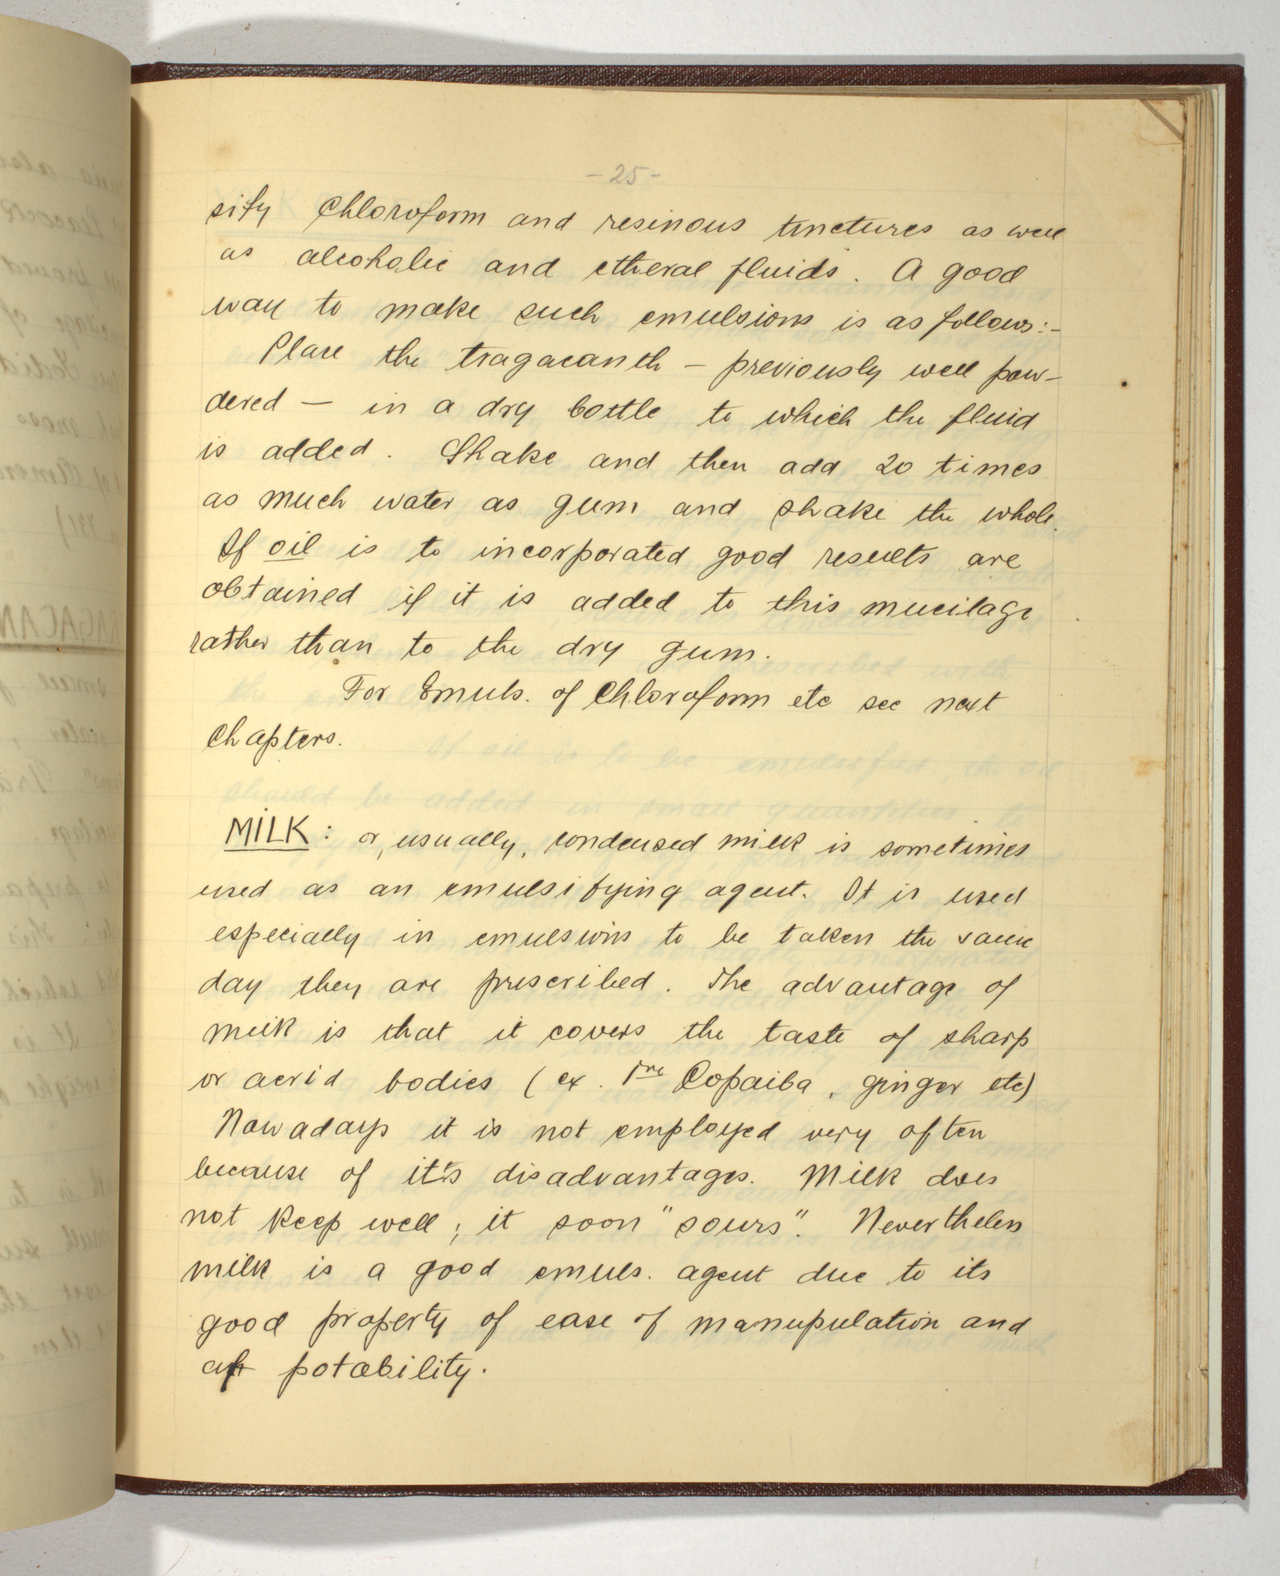 -25-
sify Chloroform and resinous tinctures as well
as alcoholic and etheral fluids. A good
way to make such emulsions is as follows:-
Place the tragacanth - previously well pow-
dered - in a dry bottle to which the fluid
is added. Shake and then add 20 times
as much water as gum and shake the whole.
If oil is to incorporated good results are
obtained if it is added to this mucilage
rather than to the dry gum.
For Emuls. of Chloroform etc see next
Chapters.
MILK: or, usually, condensed milk is sometimes
used as an emulsifying agent. It is used
especially in emulsions to be taken the same
day they are prescribed. The advantage of
milk is that it covers the taste of sharp
or acrid bodies (ex. Tre Copaiba, ginger etc)
Nowadays it is not employed very often
because of it's disadvantages. Milk does
not keep well; it soon "sours". Nevertheless
milk is a good emuls. agent due to its
good property of ease of manupulation and
potability.